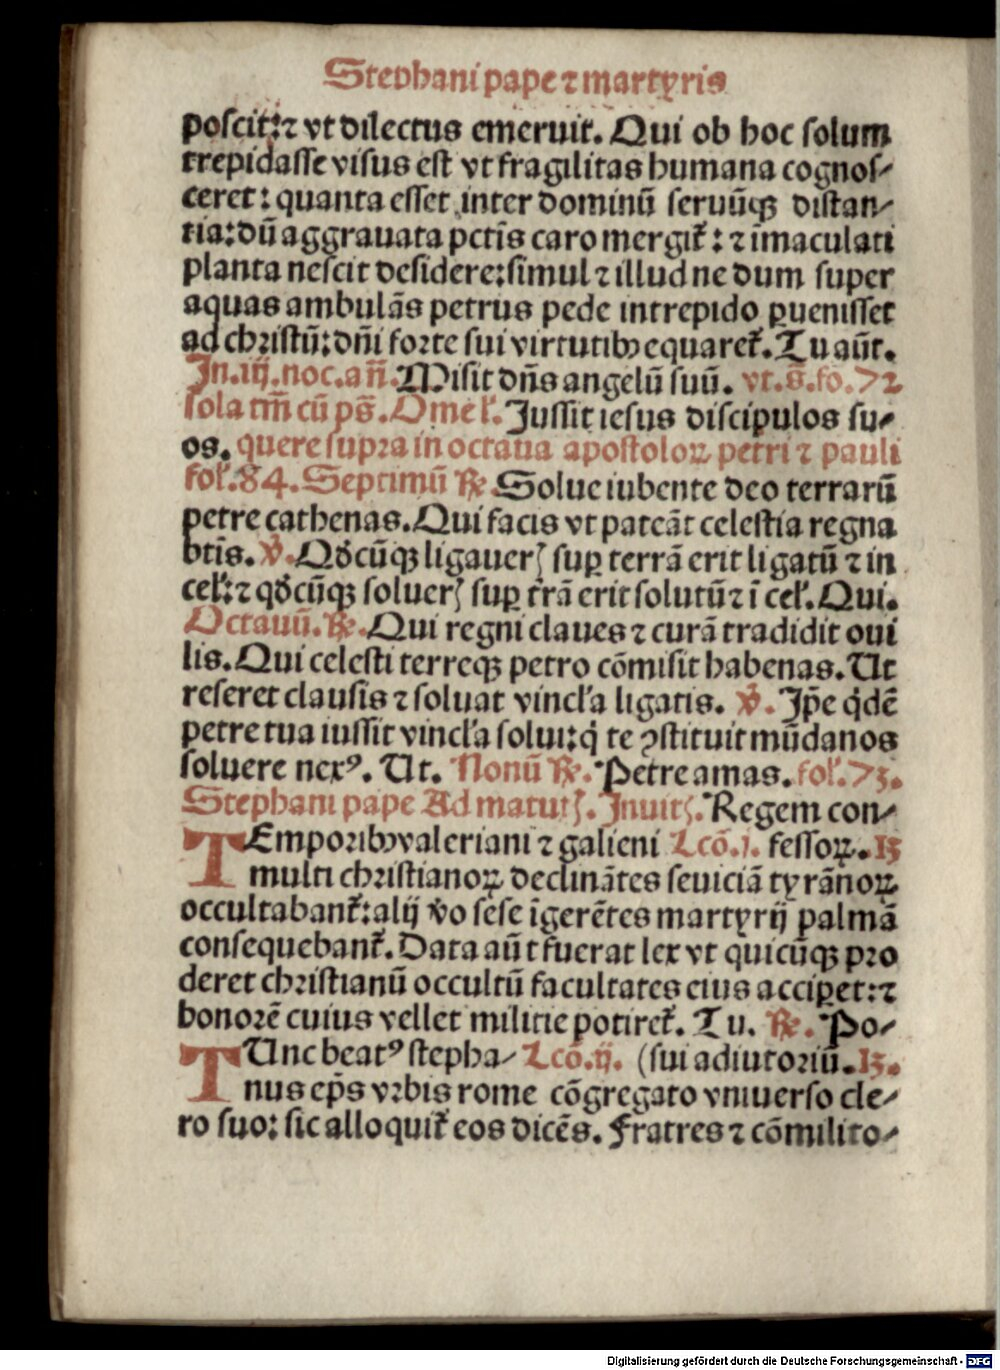 Stephani pape ⁊ martyris
poscit:⁊ vt dilectus emeruit. Qui ob hoc solum
trepidasse visus est vt fragilitas humana cognos⸗
ceret: quanta esset inter dominū seruūqꝫ distan⸗
tia:dū aggrauata pctīs caro mergit᷑: ⁊ īmaculati
planta nescit desidere:simul ⁊ illud ne dum super
aquas ambulās petrus pede intrepido ꝑuenisset
ad christū:dn̄i forte sui virtutibꝫ equaret᷑. Tu aūt.
In.iij.noc.an̄. Misit dn̄s angelū suū. vt.s̄.fo.72
sola tm̄ cū ps̄. Omel̕. Jussit iesus discipulos su⸗
os. quere supra in octaua apostoloꝝ petri ⁊ pauli
fol̕.84. Septimū ℞. Solue iubente deo terrarū
petre cathenas. Qui facis vt pateāt celestia regna
btīs. ℣. Qd̕cūqꝫ ligauerꝭ suꝑ terrā erit ligatū ⁊ in
cel̕:⁊ qd̕cūqꝫ soluerꝭ suꝑ t̄rā erit solutū ⁊ ī cel̕. Qui.
Octauū. ℞. Qui regni claues ⁊ curā tradidit oui
lis. Qui celesti terreqꝫ petro cōmisit habenas. Ut
reseret clausis ⁊ soluat vincl̕a ligatis. ℣. Ip̄e q̇dē
petre tua iussit vincl̕a solui:q̇ te ꝯstituit mūdanos
soluere nexꝰ. Ut. Nonū ℞. Petre amas. fol̕.73.
Stephani pape Ad matutꝭ. Inuitꝭ. Regem con⸗
TEmporibꝫ valeriani ⁊ galieni Lcō.j. fessoꝝ. 15
multi christianoꝝ declinātes seuiciā tyrānoꝝ
occultabant᷑:alij v̕o sese īgerētes martyrij palmā
consequebant᷑. Data aūt fuerat lex vt quicūqꝫ pro
deret christianū occultū facultates eius acciꝑet:⁊
honorē cuius vellet militie potiret᷑. Tu. ℞. Po⸗
TUnc beatꝰ stepha⸗ Lcō.ij. (sui adiutoriū. 15.
nus ep̄s vrbis rome cōgregato vniuerso cle⸗
ro suo: sic alloquit᷑ eos dicēs. Fratres ⁊ cōmilito⸗
Digitalisierung gefördert durch die Deutsche Forschungsgemeinschaft - DFG